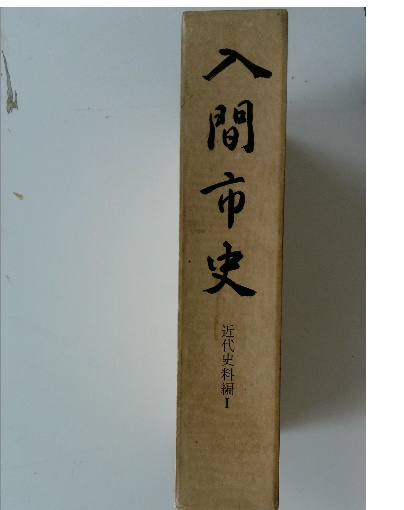 入間市史
近代史料編Ⅰ